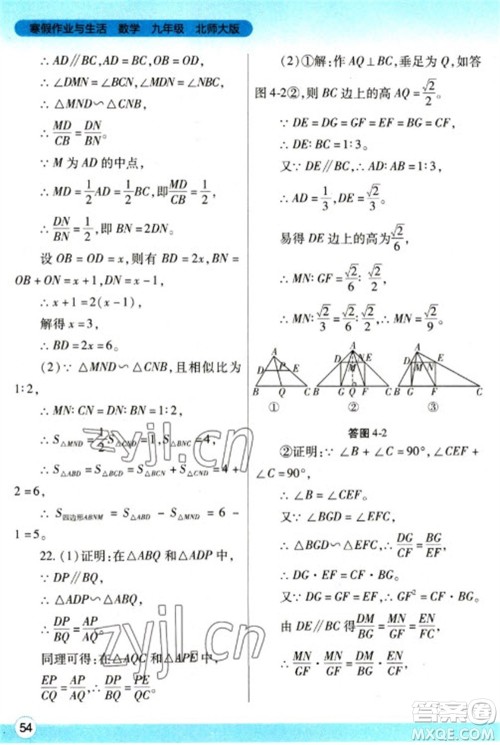 寒假作业与生活 数学 九年级 北师大版
∴ AD∥BC, AD=BC, OB=OD,
∴ ∠DMN=∠BCN, ∠MDN=∠NBC,
∴ △MND∽△CNB,
∴ MD/CB=DN/BN.
∵ M 为 AD 的中点,
∴ MD=1/2AD=1/2BC, 即MD/CB=1/2,
∴ DN/BN=1/2, 即 BN=2DN.
设 OB=OD=x, 则有 BD=2x, BN=
OB+ON=x+1, DN=x-1,
∴ x+1=2(x-1),
解得 x=3,
∴ BD=2x=6.
(2) ∵ △MND∽△CNB, 且相似比为
1∶2,
∴ MN∶CN=DN∶BN=1∶2,
∴ S△MND=1/2S△CND=1, S△BNC=4,
∴ S△ABD=S△BCD=S△BCN+S△CND=4+
2=6,
∴ S四边形ABNM=S△ABD-S△MND=6-
1=5.
22. (1)证明:在△ABQ 和△ADP 中,
∵ DP∥BQ,
∴ △ADP∽△ABQ,
∴ DP/BQ=AP/AQ.
同理可得:在△ACQ 和△APE 中,
EP/CQ=AP/AQ, ∴ DP/BQ=PE/QC.
(2)①解:作 AQ⊥BC, 垂足为 Q, 如答
图4-2②, 则 BC 边上的高 AQ=√2/2.
∵ DE=DG=GF=EF=BG=CF,
∴ DE∶BC=1∶3.
又∵ DE∥BC, ∴ AD∶AB=1∶3,
∴ AD=1/3, DE=√2/3.
易得 DE 边上的高为√2/6,
∴ MN∶GF=√2/6∶√2/2,
∴ MN∶√2/3=√2/6∶√2/2, ∴ MN=√2/9.
A D P E B Q C
①
A D E M N B G Q F C
②
A D M N E B G F C
③
答图 4-2
②证明:∵ ∠B+∠C=90°, ∠CEF+
∠C=90°,
∴ ∠B=∠CEF.
又∵ ∠BGD=∠EFC,
∴ △BGD∽△EFC, ∴ DG/CF=BG/EF,
∴ DG·EF=CF·BG.
又∵ DG=GF=EF, ∴ GF²=CF·BG.
由 DE∥BC 得DM/BG=MN/GF=EN/FC,
∴ MN/GF·MN/GF=DM/BG·EN/CF,
54
zyjl.cn
zyjl.cn
答案圈
MXQE.COM